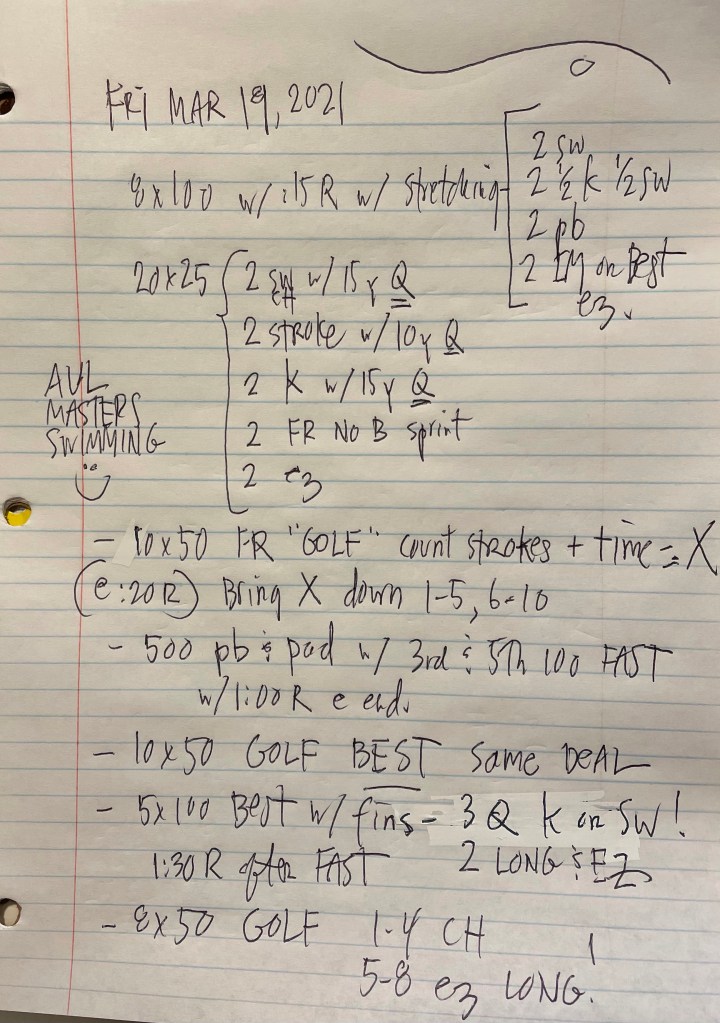 FRI MAR 19, 2021
8x100 w/ :15 R w/ stretching
2 sw
2 ½ k ½ sw
2 pb
2 IM or Best
ez.
20x25
2 w/ 15 y Q
2 stroke w/ 10 y Q
2 K w/ 15 y Q
2 FR NO B sprint
2 ez
AVL
MASTERS
SWIMMING
- 10x50 FR "GOLF" count strokes + time = X
(e :20 R) Bring X down 1-5, 6-10
- 500 pb & pad w/ 3rd & 5th 100 FAST
w/ 1:00 R e end.
- 10x50 GOLF BEST Same DEAL
- 5x100 Best w/ fins - 3 Q K or SW!
1:30 R after FAST 2 LONG & EZ
- 8x50 GOLF 1-4 CH
5-8 ez LONG!